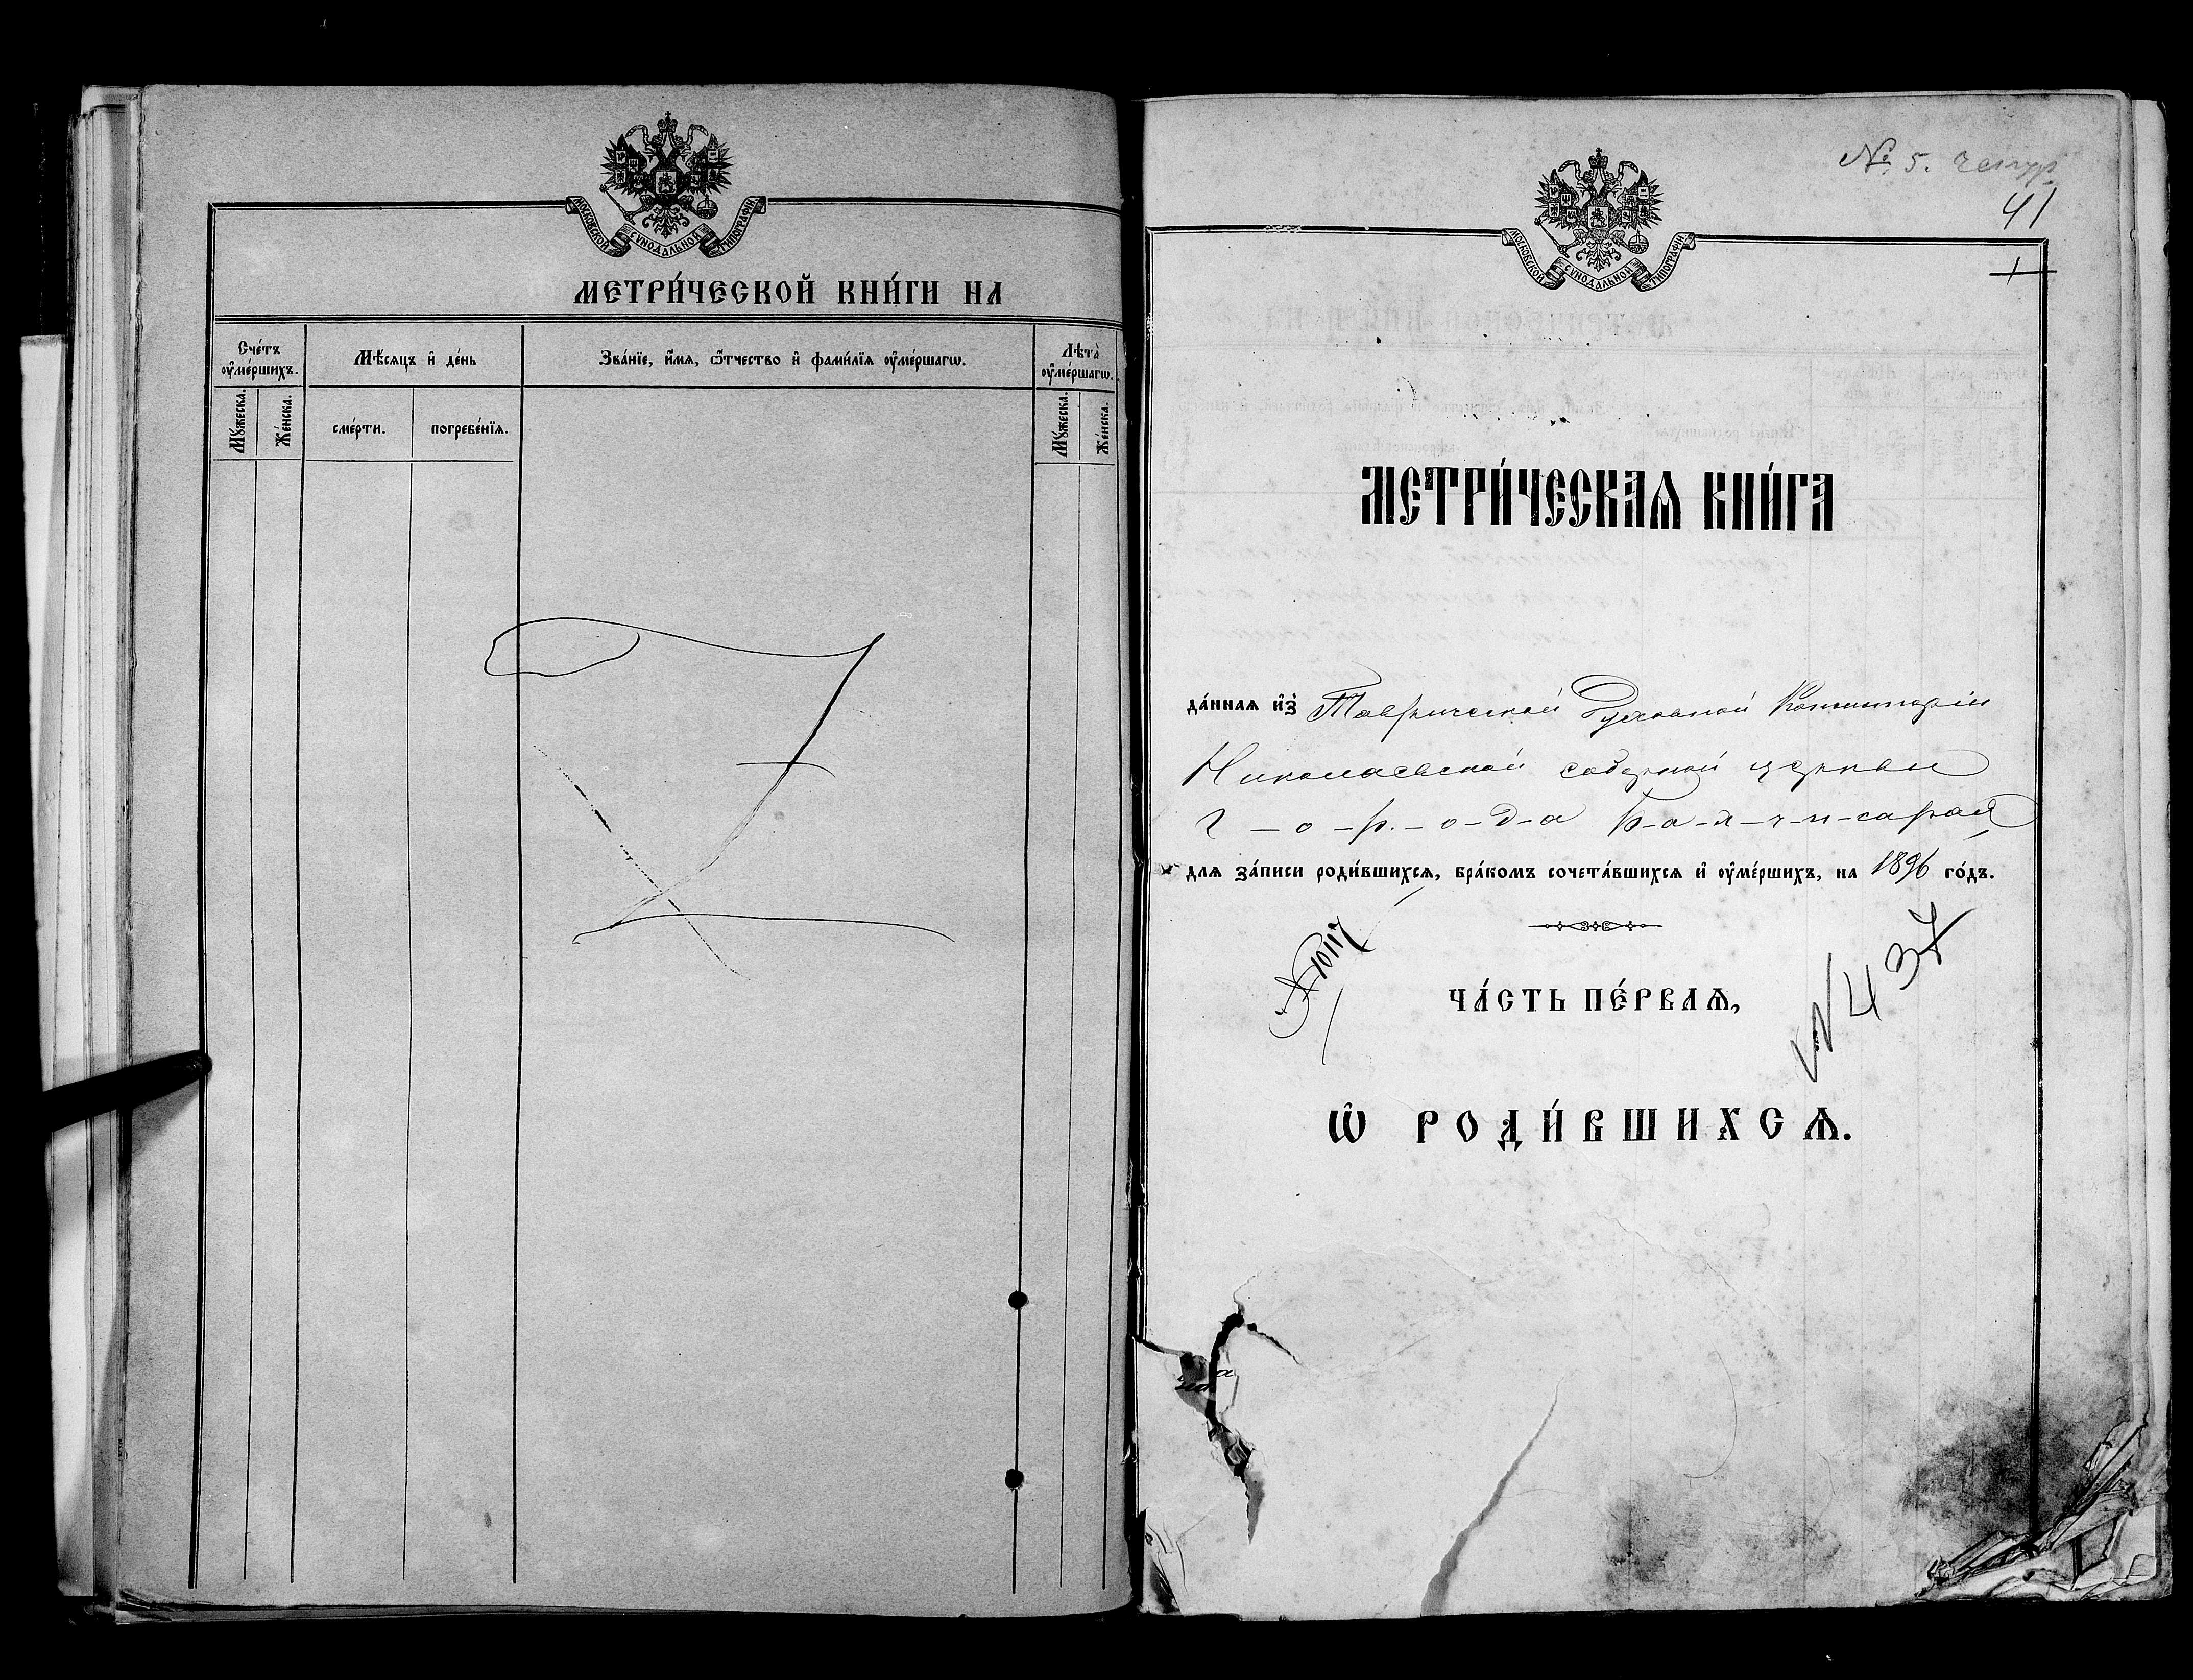 МОСКОВСКОЙ СУНОДАЛЬНОЙ ТИПОГРАФІИ
МЕТРИ́ЧЕСКОЙ КНИ́ГИ НА
Сче́тъ ᲂу҆ме́ршихъ.
Мѣ́сяцъ и҆ де́нь
Зва́нїе, и҆́мя, ѻ҆́тчество и҆ фами́лїя ᲂу҆ме́ршагѡ.
Лѣта̀ ᲂу҆ме́ршагѡ.
Мꙋ́жеска.
Же́нска.
сме́рти.
погребе́нїя.
Мꙋ́жеска.
Же́нска.
№ 5.
41
1
МОСКОВСКОЙ СУНОДАЛЬНОЙ ТИПОГРАФІИ
МЕТРИ́ЧЕСКАѦ КНИ́ГА
да́нная и҆з̾ Таврической Духовной Консисторіи
Николаевской соборной церкви
г-о-р-о-д-а Б-а-х-ч-и-сарая
для за́писи роди́вшихсѧ, бра́комъ сочета́вшихся и҆ ᲂу҆ме́ршихъ, на 1896 го́дъ.
№ 10117
№ 437
ЧА́СТЬ ПЕ́РВАѦ,
Ѡ҆ РОДИ́ВШИХСѦ.